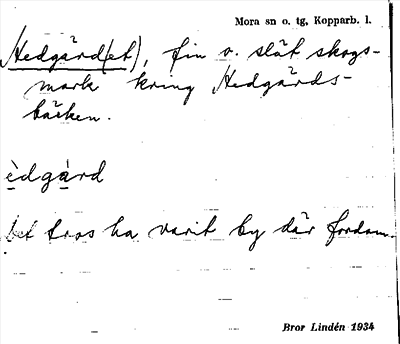 Mora sn o. tg, Kopparb. l.
Hedgård(et), fin o. slät skogs-
mark kring Hedgårds-
bäcken.
èdgàrd
Det tros ha varit by där fordom.
Bror Lindén 1934